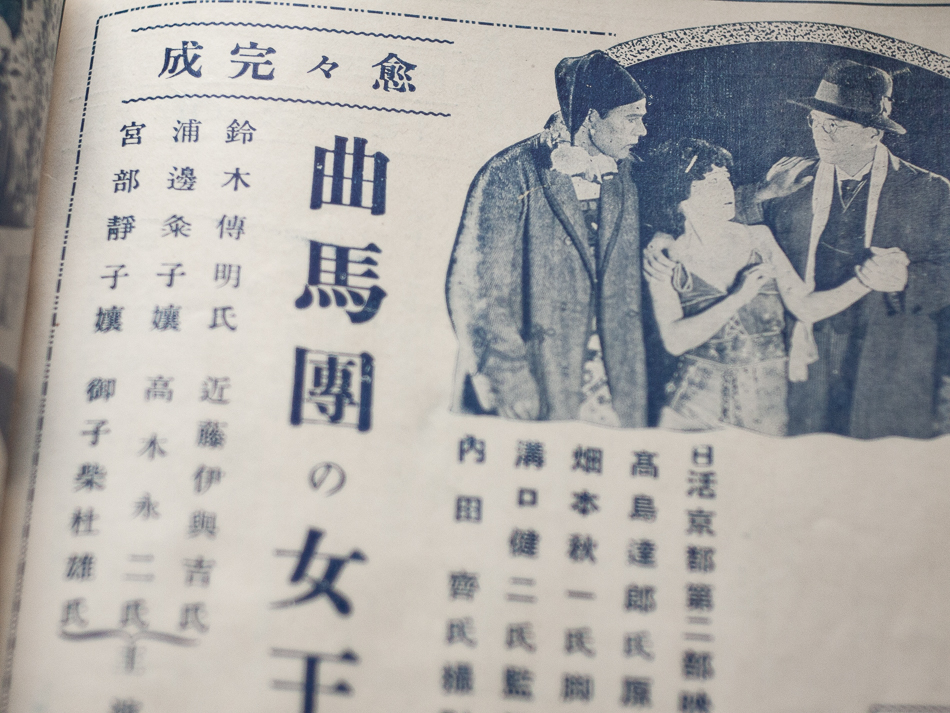 愈々完成
日活京都第二部映
高島達郎氏原
畑本秋一氏脚
溝口健二氏監
内田齊氏撮
曲馬團の女王
鈴木傳明氏 近藤伊與吉氏
浦邊粂子孃 高木永二氏
宮部靜子孃 御子柴杜雄氏
主演